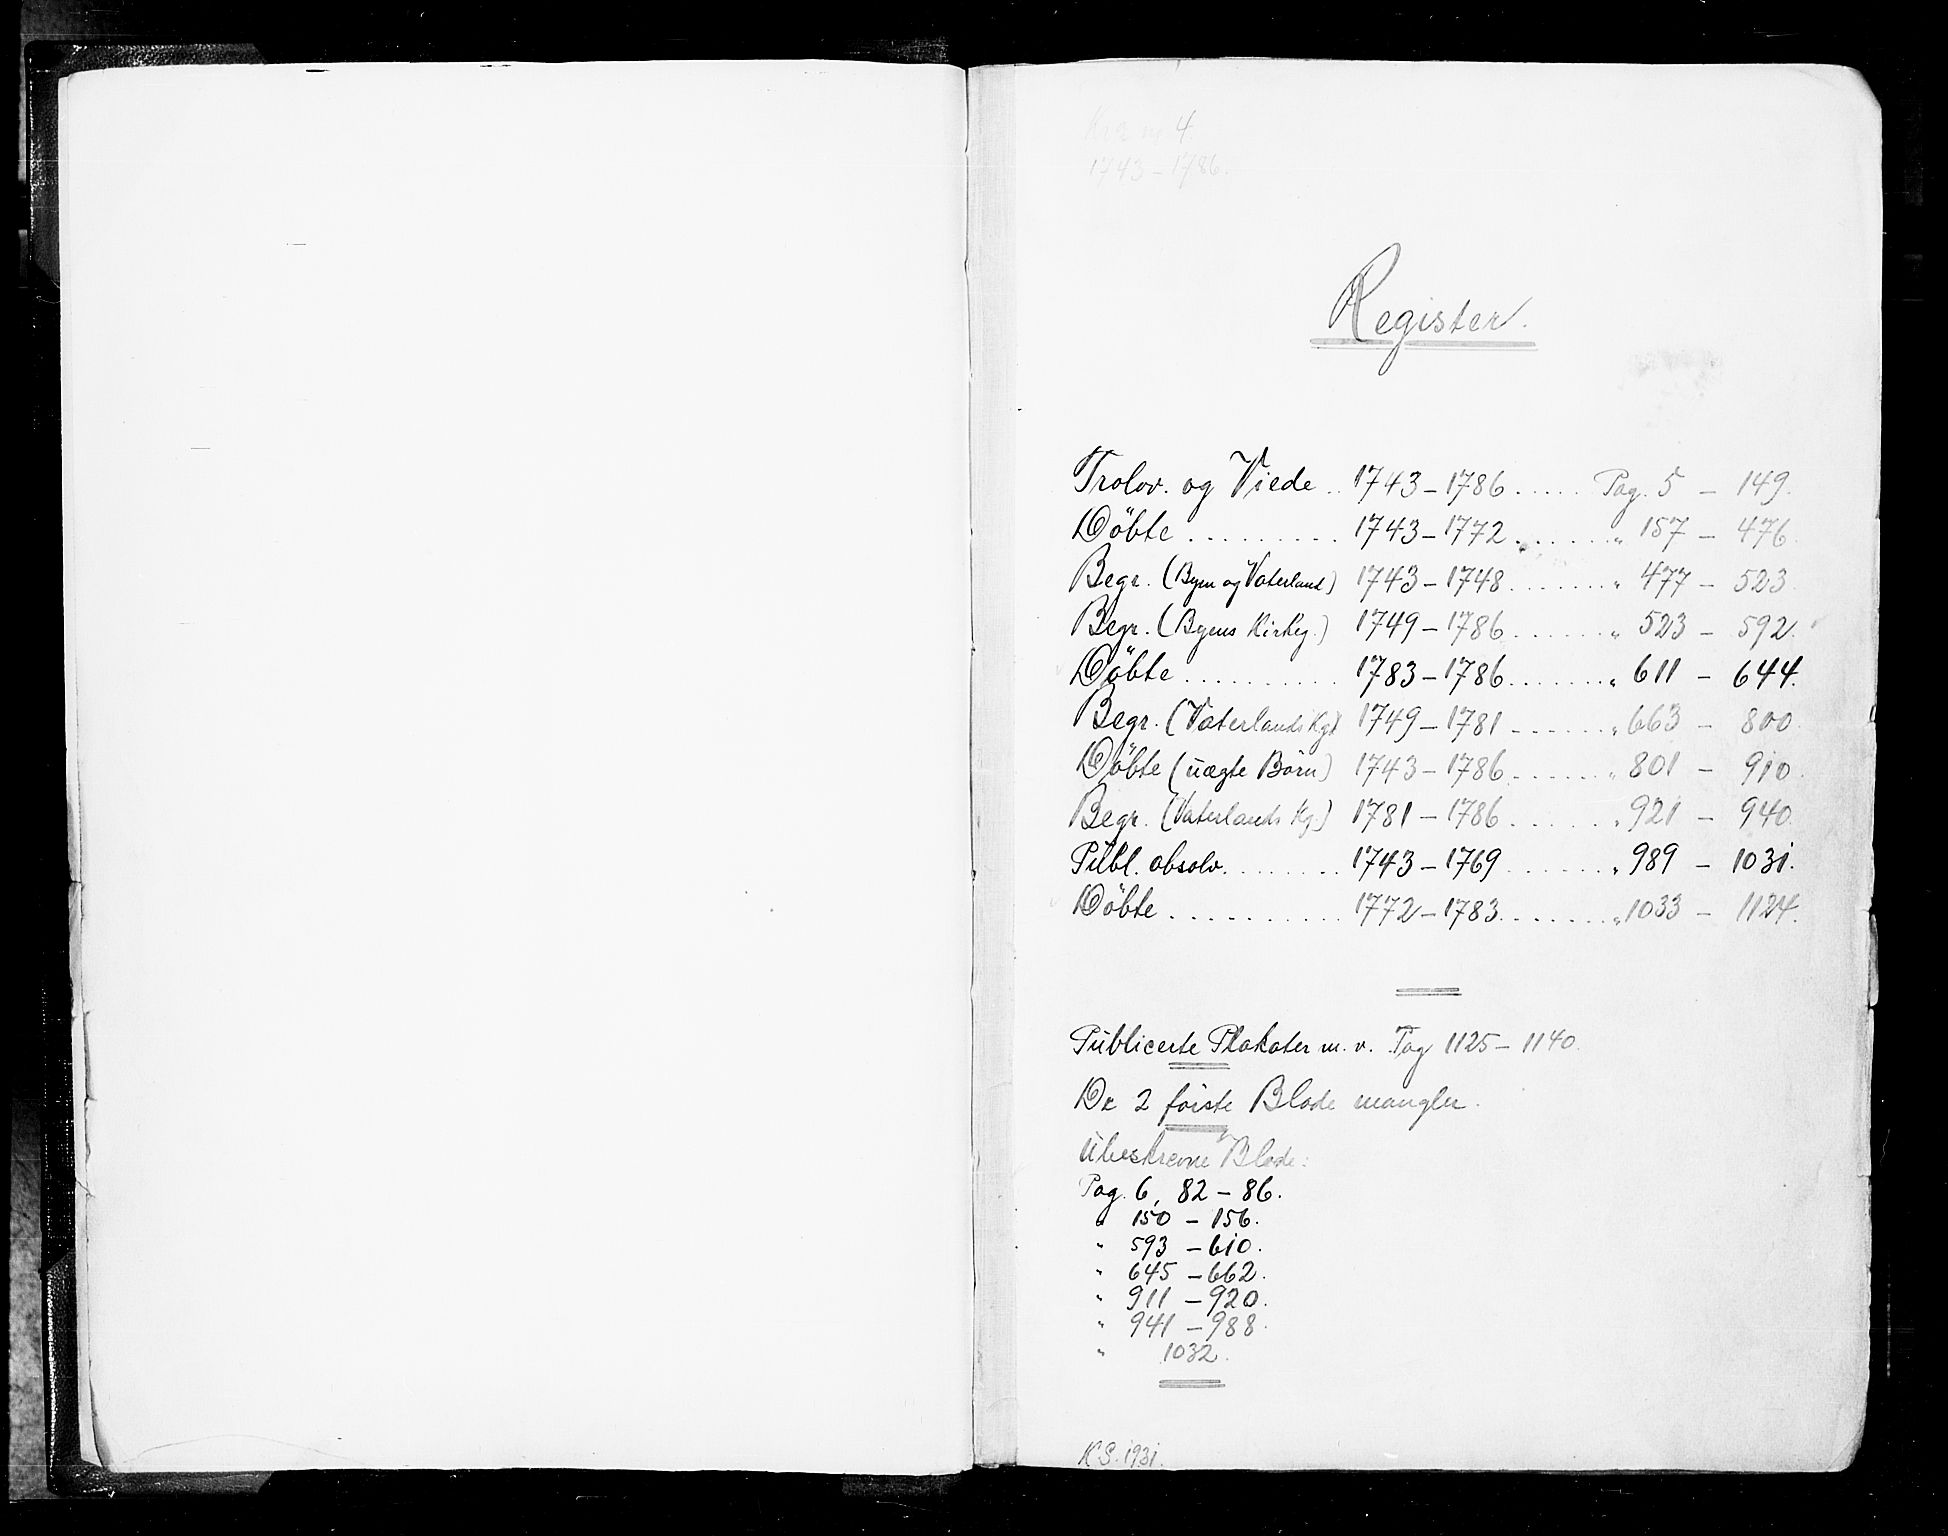 4
1743 – 1786.
Register.
Trolov. og Viede .. 1743 – 1786 ..... Pag. 5 – 149.
Döbte ......... 1743 – 1772 ...... " 157 – 476.
Begr. (Byen og Vaterland) 1743 – 1748 ....... " 477 – 523
Begr. (Byens Kirkeg.) 1749 – 1786 ...... " 523 – 592.
Döbte .......... 1783 – 1786 ....... " 611 – 644.
Begr. (Vaterlands Kg.) 1749 – 1781 ...... " 663 – 800.
Döbte (uægte Börn) 1743 – 1786 ...... " 801 – 910.
Begr. (Vaterlands Kg.) 1781 – 1786 ...... " 921 – 940.
Publ. absolv. ....... 1743 – 1769 ...... " 989 – 1031.
Döbte .......... 1772 – 1783 ....... " 1033 – 1124.
Publicerte Plakater m. v. Pag 1125 – 1140.
De 2 første Blade mangler.
Ubeskrevne Blade:
Pag. 6, 82 – 86.
" 150 – 156.
" 593 – 610.
" 645 – 662.
" 911 – 920.
" 941 – 988.
" 1032.
K S. 1931.